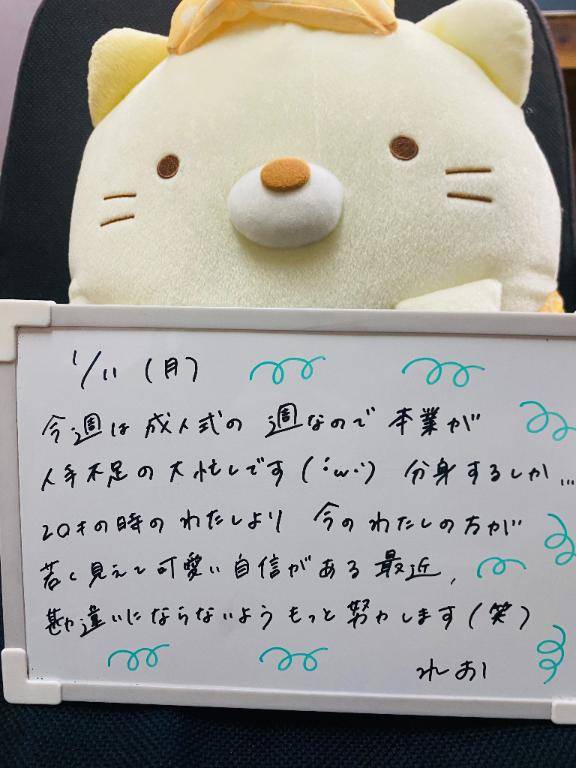 1/11 (月)
今週は成人式の週なので本業が
人手不足の大忙しです(´:ω:`) 分身するしか...
20才の時のわたしより 今のわたしの方が
若く見えて可愛い自信がある最近、
勘違いにならないようもっと努力します(笑)
れおし